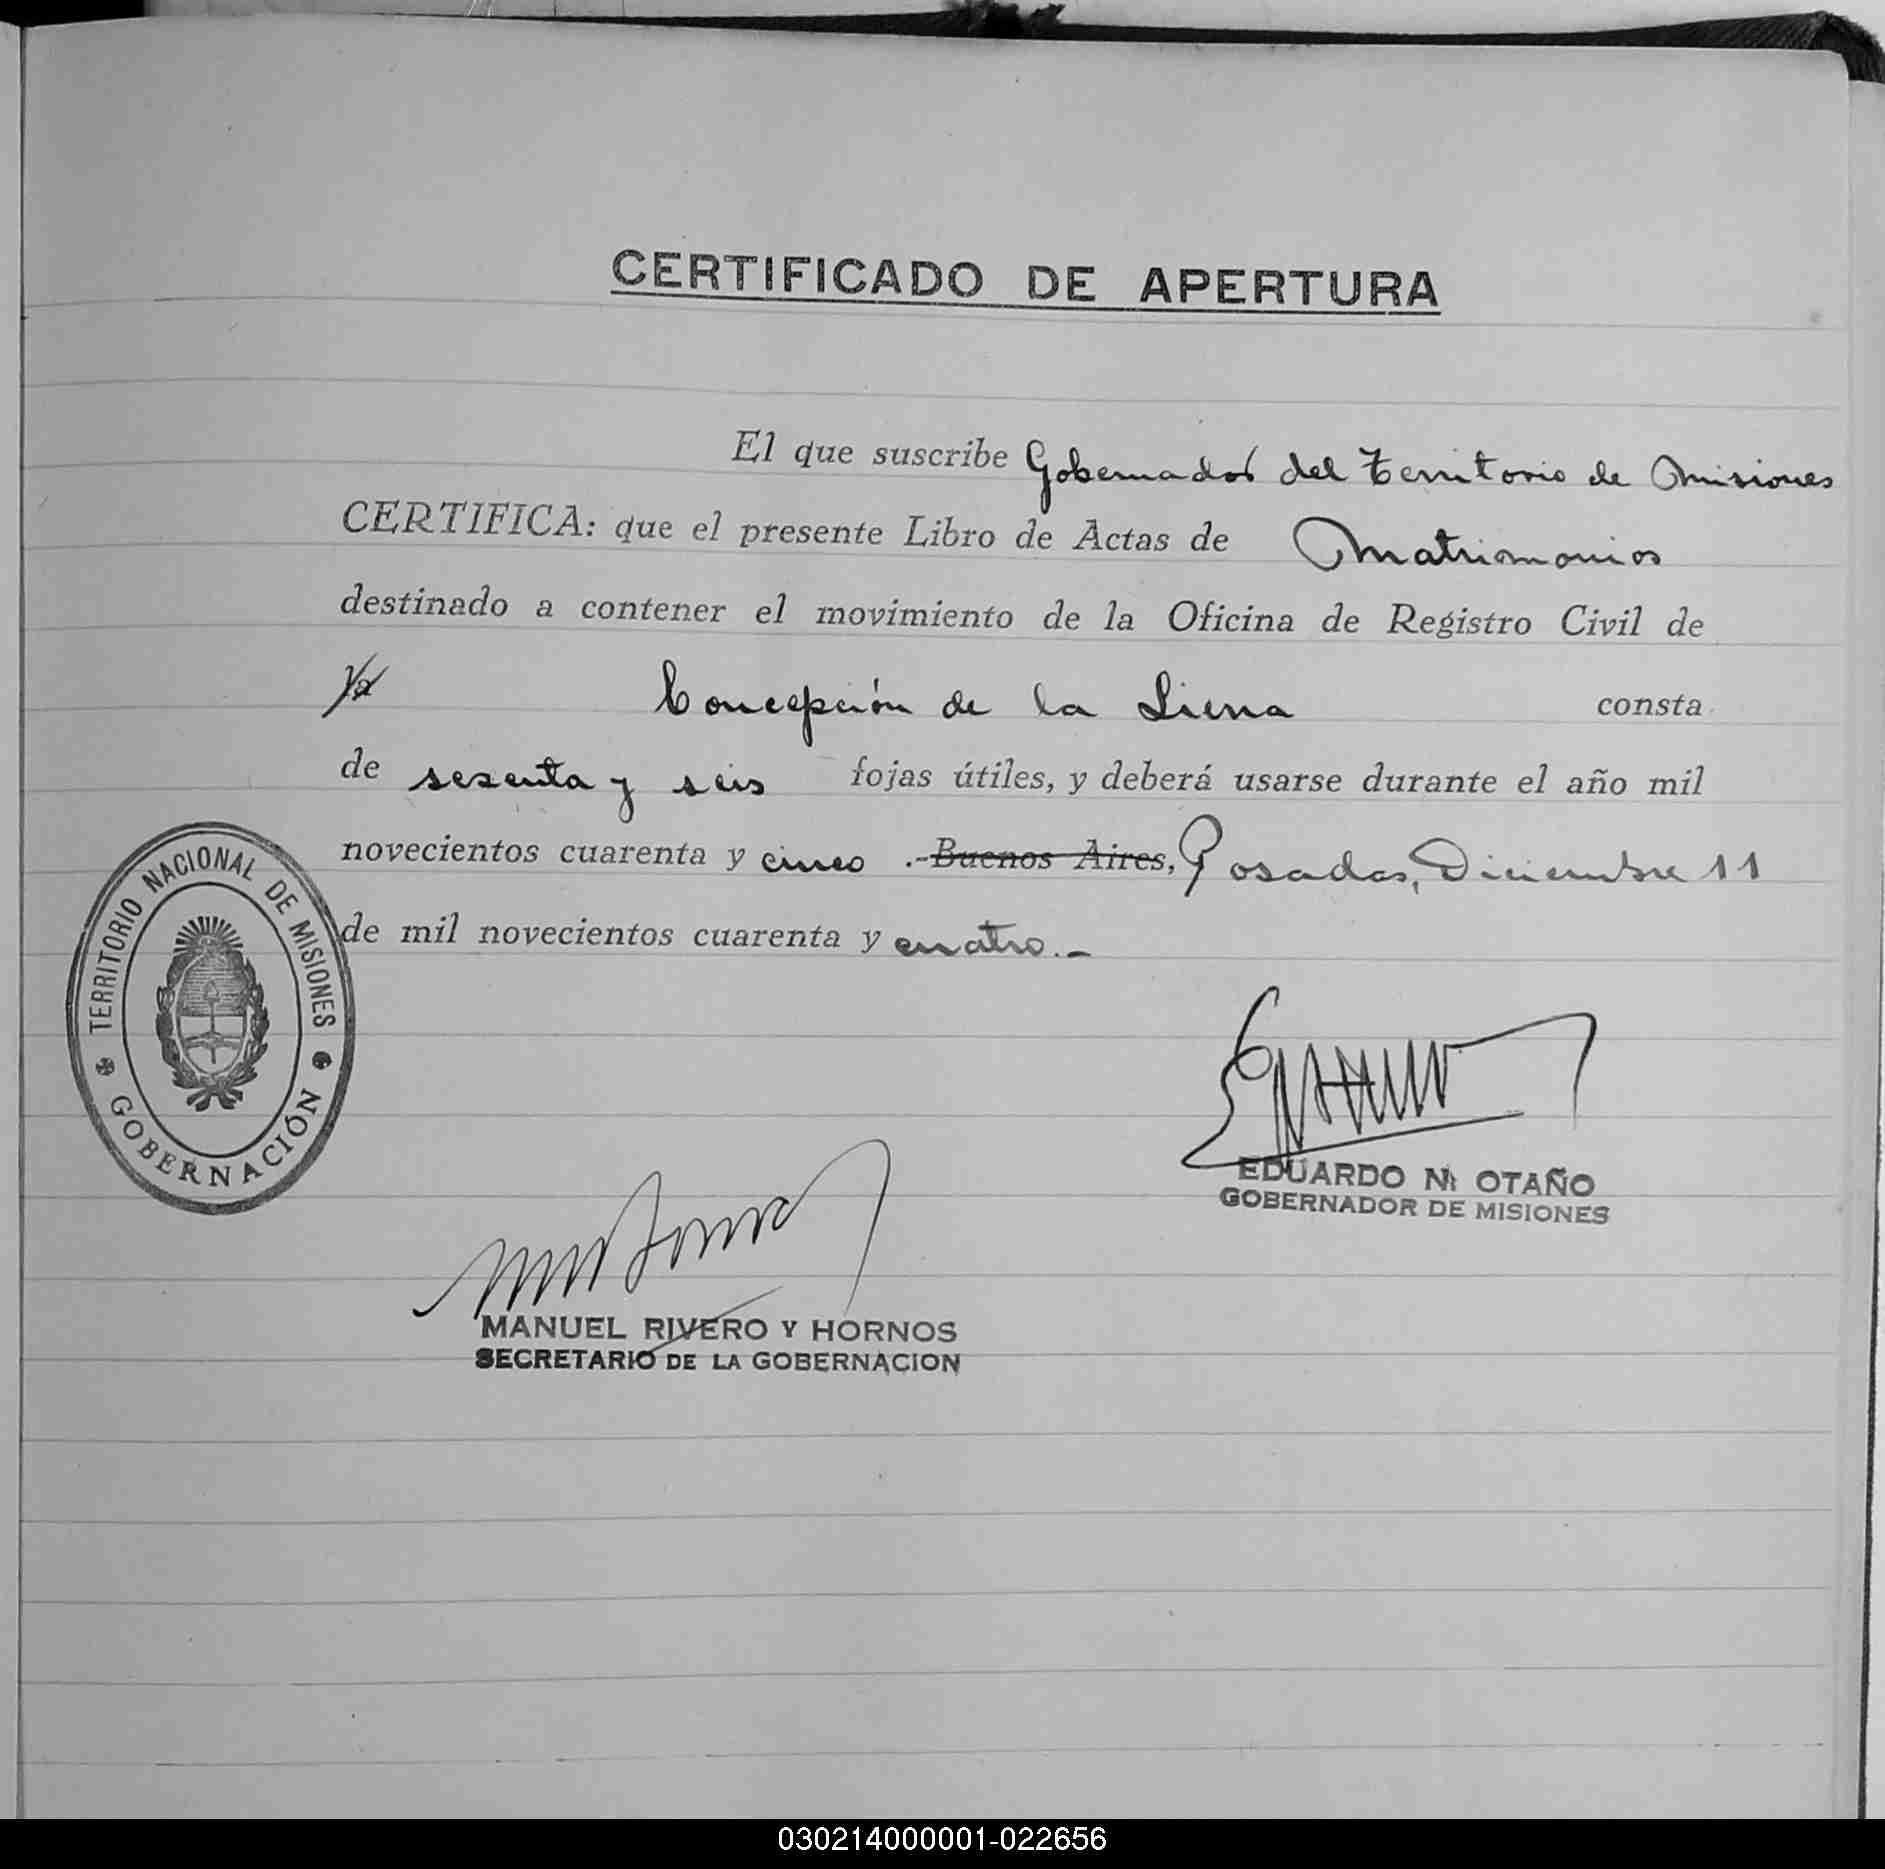 CERTIFICADO DE APERTURA
El que suscribe Gobernador del Territorio de Misiones
CERTIFICA: que el presente Libro de Actas de Matrimonios
destinado a contener el movimiento de la Oficina de Registro Civil de
Concepción de la Sierra consta
de sesenta y seis fojas útiles, y deberá usarse durante el año mil
novecientos cuarenta y cinco .-Buenos Aires, Posadas, Diciembre 11
de mil novecientos cuarenta y cuatro.-
TERRITORIO NACIONAL DE MISIONES
GOBERNACIÓN
EDUARDO N. OTAÑO
GOBERNADOR DE MISIONES
MANUEL RIVERO Y HORNOS
SECRETARIO DE LA GOBERNACION
030214000001-022656